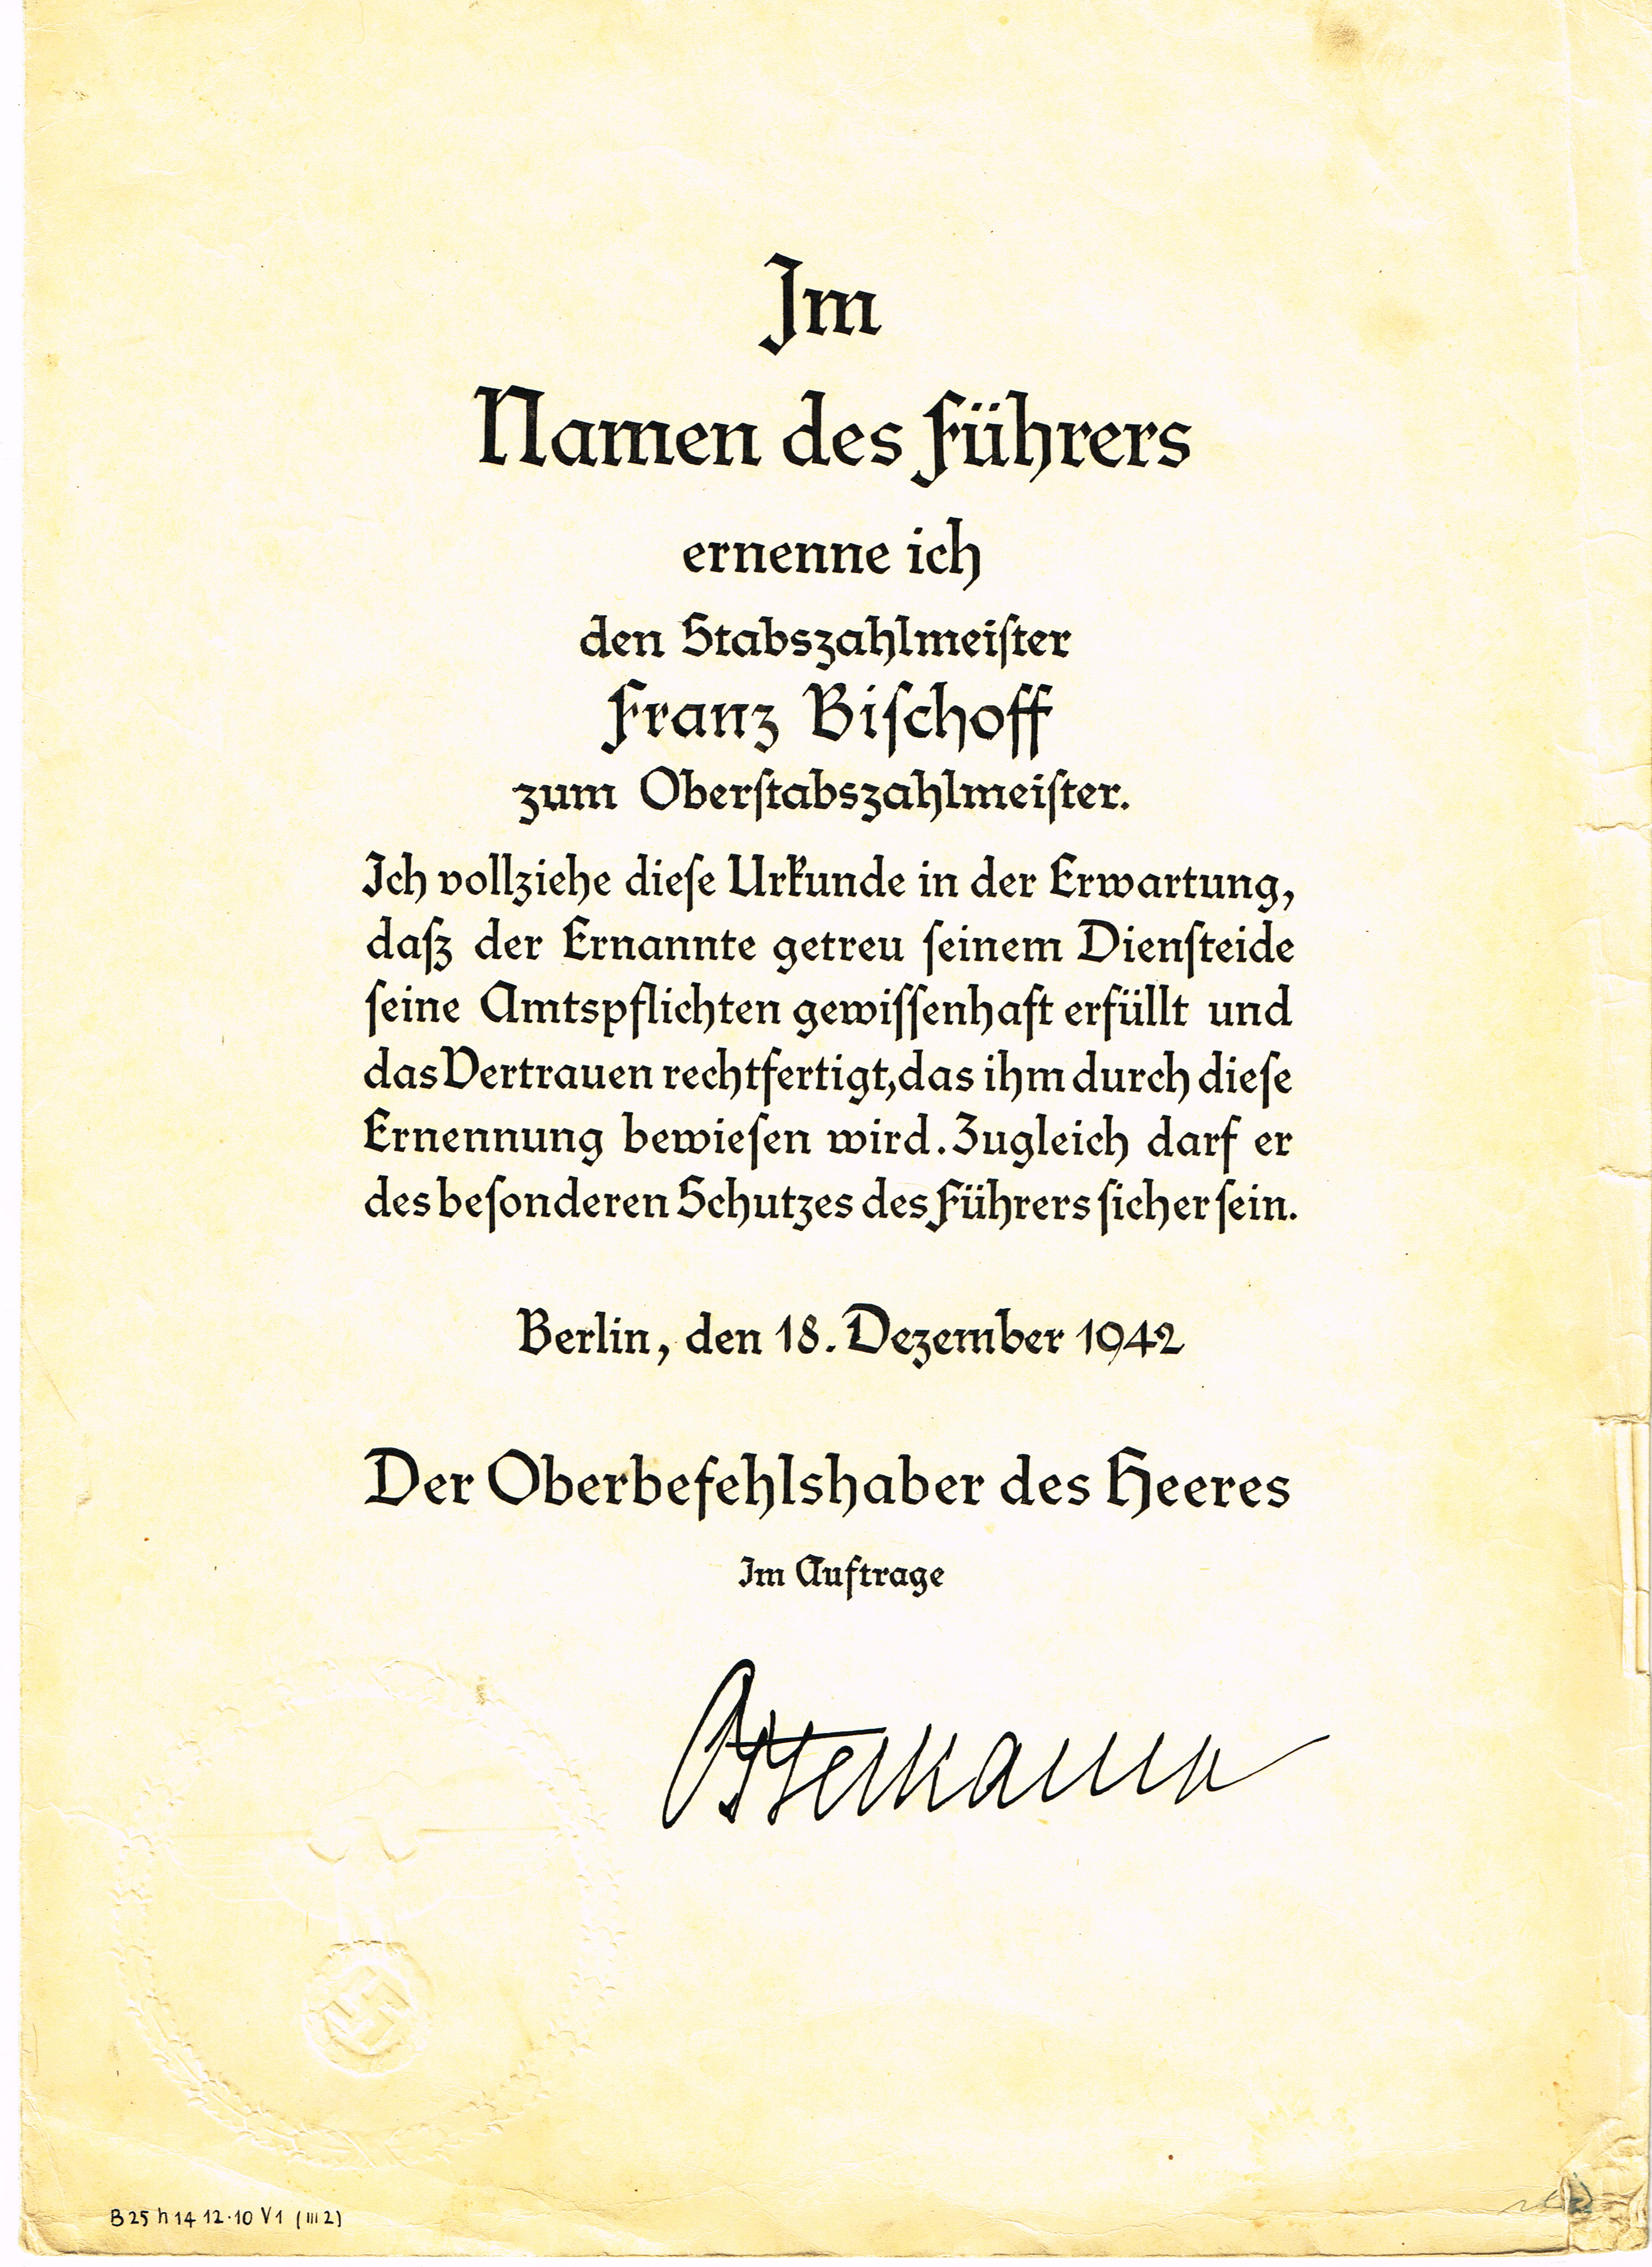 Im
Namen des Führers
ernenne ich
den Stabszahlmeiſter
Franz Biſchoff
zum Oberſtabszahlmeiſter.
Ich vollziehe dieſe Urkunde in der Erwartung,
daß der Ernannte getreu ſeinem Dienſteide
ſeine Amtspflichten gewiſſenhaft erfüllt und
das Vertrauen rechtfertigt, das ihm durch dieſe
Ernennung bewieſen wird. Zugleich darf er
des beſonderen Schutzes des Führers ſicher ſein.
Berlin, den 18. Dezember 1942
Der Oberbefehlshaber des Heeres
Im Auftrage
Ostermann
B 25 h 14 12.10 V1 (III 2)